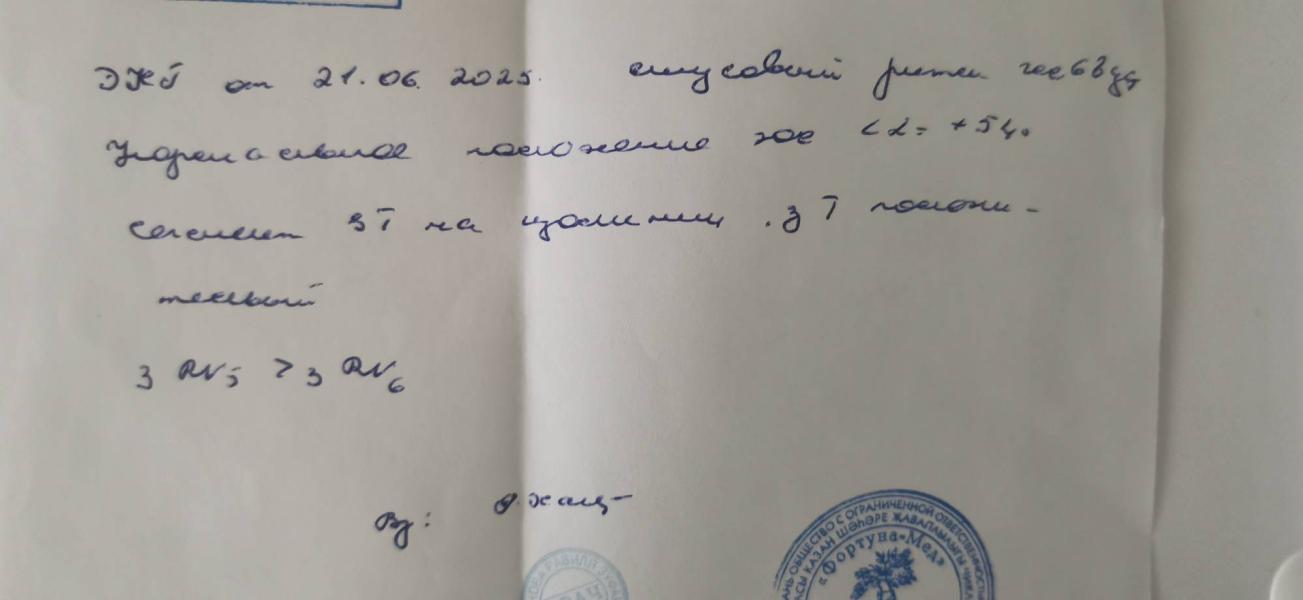 ЭКГ от 21.06.2025. синусовый ритм чсс 68 уд
Нормальное положение эос <α= +54°
сегмент ST на изолинии . з Т положи-
тельный
з RV5 > з RV6
Вр:
ОБЩЕСТВО С ОГРАНИЧЕННОЙ ОТВЕТСТВЕННОСТЬЮ
КАЗАН ШӘҺӘРЕ ҖАВАПЛЫЛЫГЫ ЧИКЛ
«Фортуна-Мед»
РАВИЛЯ
ВРАЧ